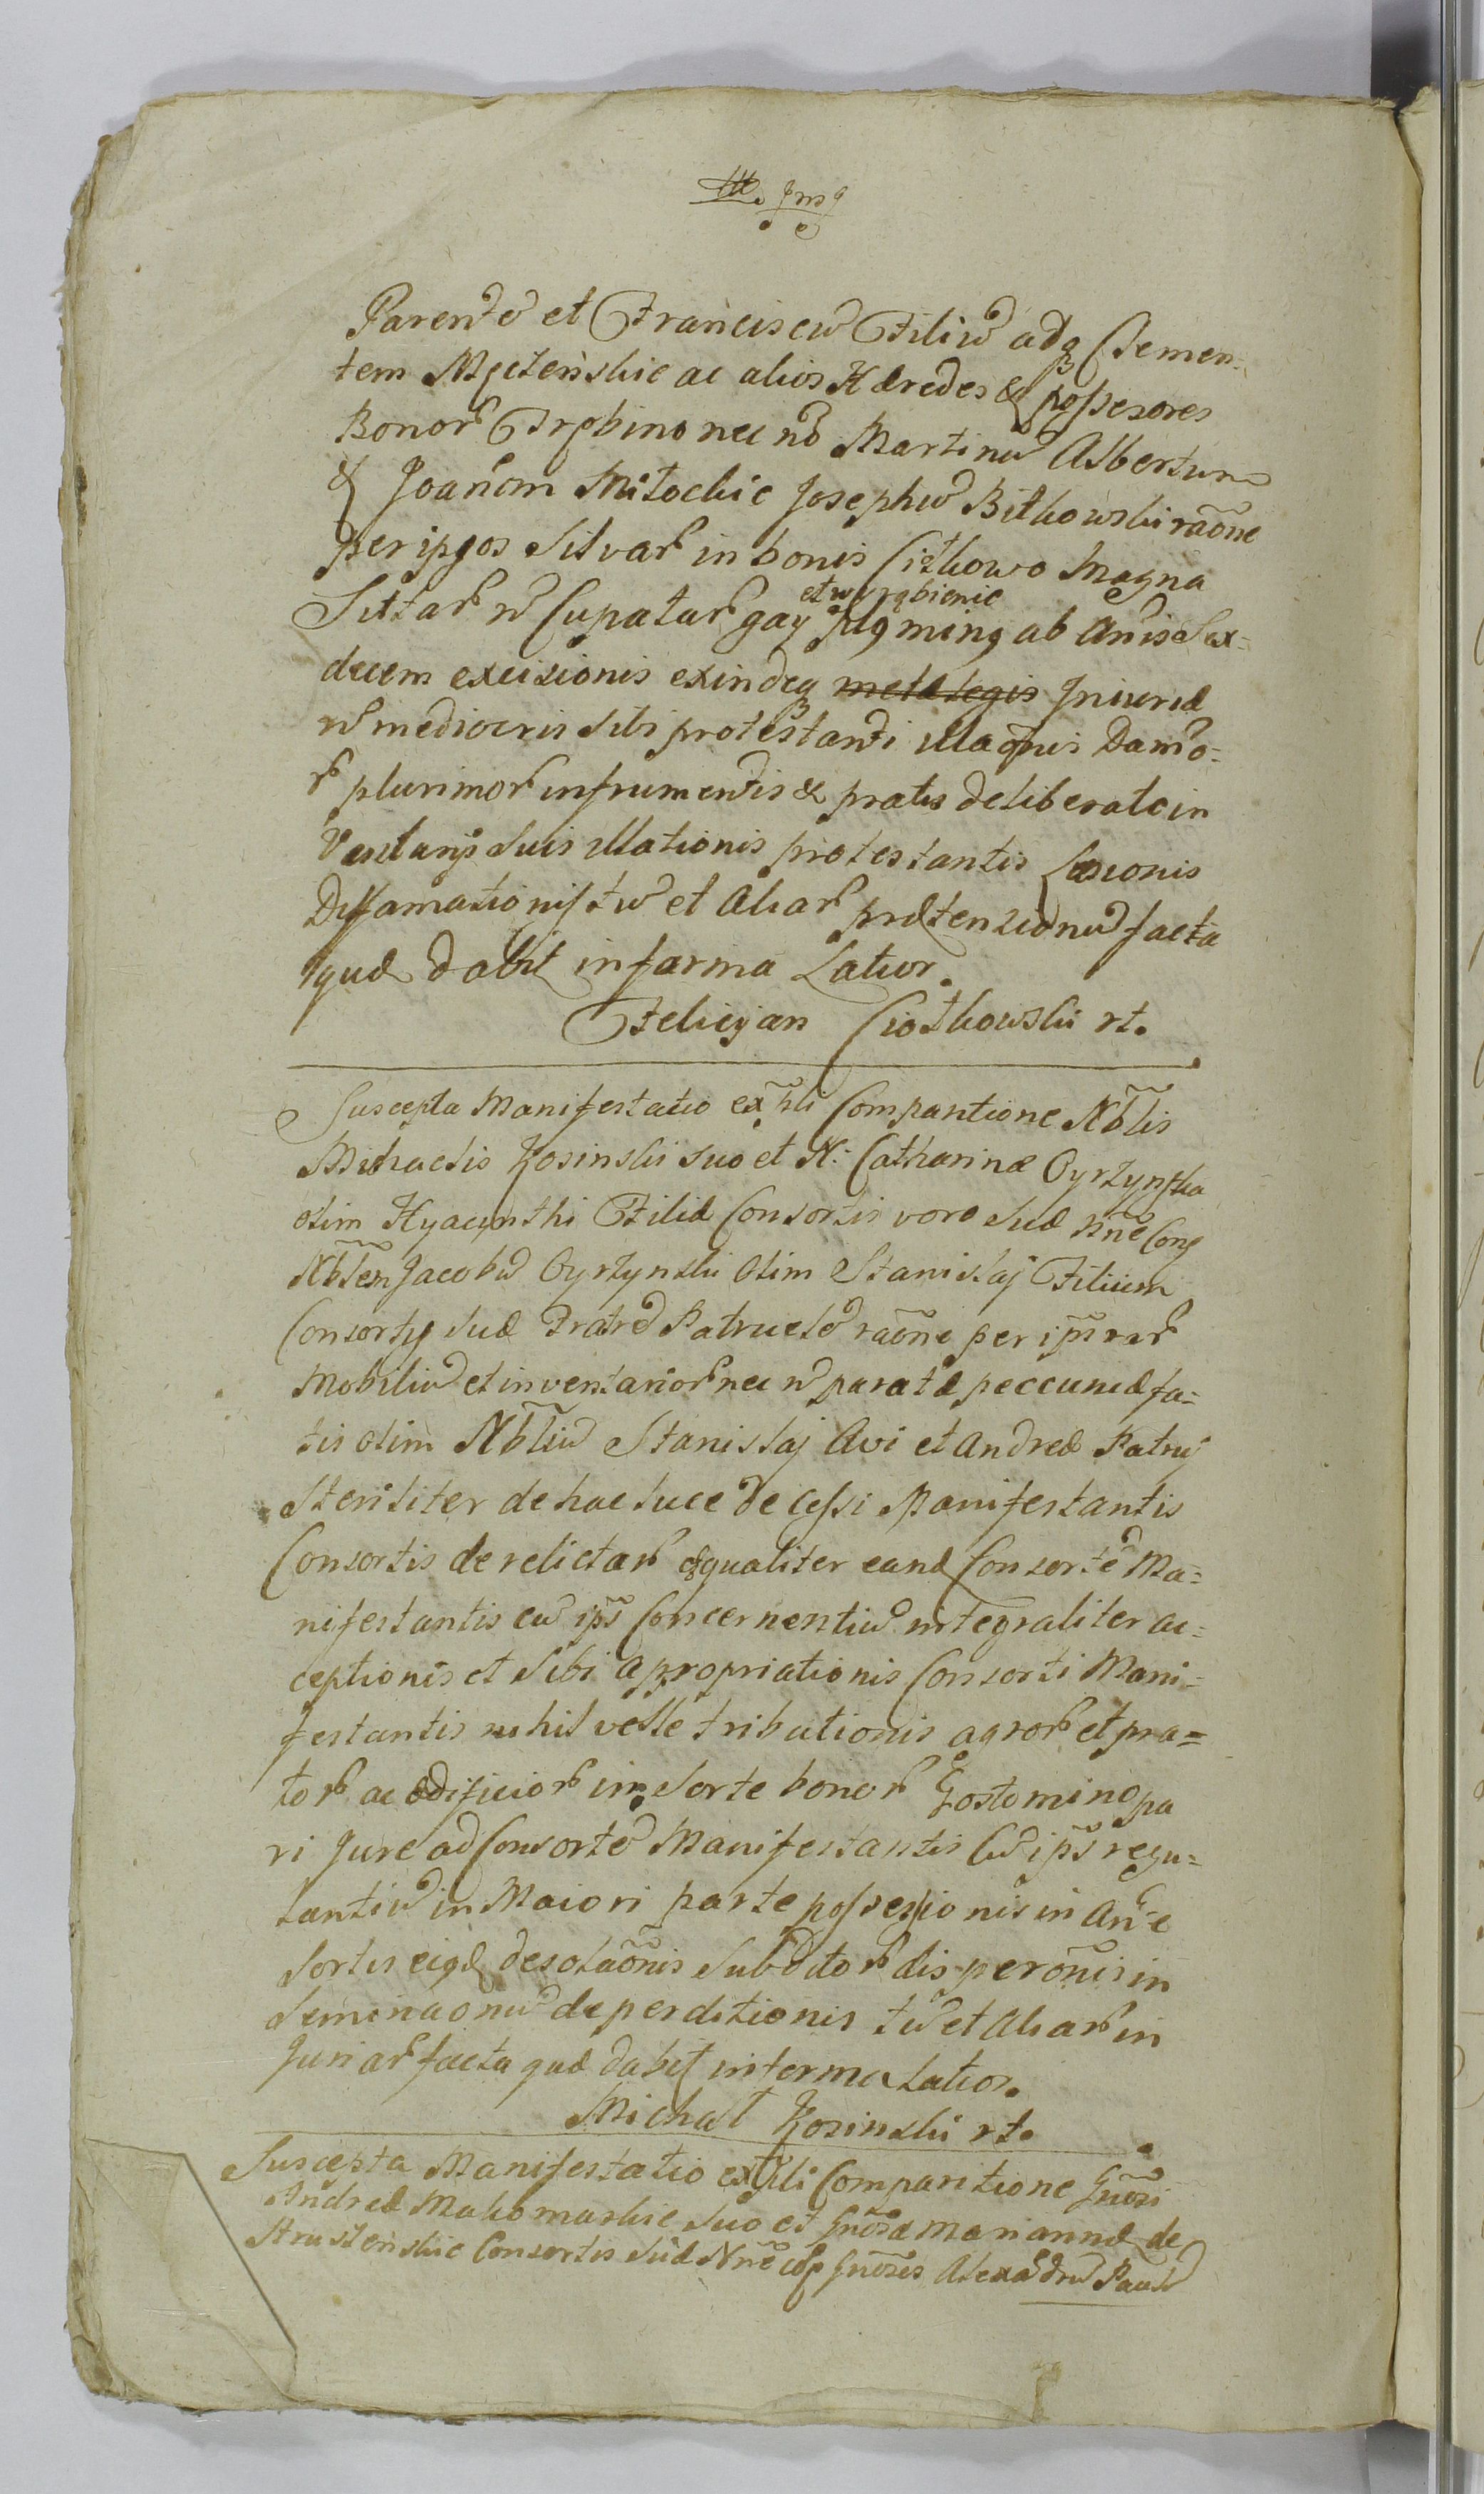 Parentẽ et Franciscũ Filiũ adq̃ Clemen=
tem Mycieńskie ac alios Hæredes & possesores
Bonorũ Trębino nec nõ Martinũ Albertum
& Joañem Mitockie Josephũ Bitkowski raõne
per ipsos silvarũ in bonis Ciotkowo Magna
Sittarũ n Cupatarũ gay et wyrąbienie ab Añis Sex=
decem excisionis exindeq̃ Iniuriæ
n mediocris sibi protestanti illaq̃nis Damõ=
rũ plurimorũ in frumentis & pratis deliberate in
ventarijs suis illationis protestantis Læsionis
Diffamationis tũ et aliarũ prætensionũ facta
quæ dabit in forma Latior.
Felicyan Ciotkowski rt.
Suscepta Manifestatio ex p̃li Comparitione Nb̃lis
Michaelis Kosinski suo et N: Catharinæ Cyrzynska
olim Hyacynthi Filiæ Consortis vero suæ Nñe Con͂
Nb̃lem Jacobũ Cyrzynski olim Stanislaj Filium
Consortis suæ Fratrẽ Patruelẽ raõne per ip̃m rerũ
Mobiliũ et inventariorũ nec n paratæ peccuniæ fa=
tis olim Nb̃liũ Stanislaj Avi et Andreæ Patruj
steriliter de hac luce decessi Manifestantis
Consortis derelictarũ æqualiter eand Consortẽ Ma=
nifestantis cũ ip̃s Concernentiũ integraliter ac=
ceptionis et sibi apropriationis Consorti Mani=
festantis nihil velle tributionis agrorũ et pra=
torũ ac ædificiorũ in sorte bonorũ Gostomino pa
ri Jure ad Consortẽ Manifestantis cũ ip̃s regu=
lantiũ in Maiori parte possessionis in añe
sortis eiq̃ desolaõnis Subditorũ disperõnis in
seminaonũ deperditionis tũ et aliarũ in
Juriarũ facta quæ dabit in forma Latior.
Michał Kosinski rt.
Suscepta Manifestatio ex p̃li Comparitione Gnõsi
Andreæ Makomaskie suo et Gnõsæ Mariannæ de
Strusieńskie Consortis suæ Nñe Gnõses Alexãdrũ Paulũ